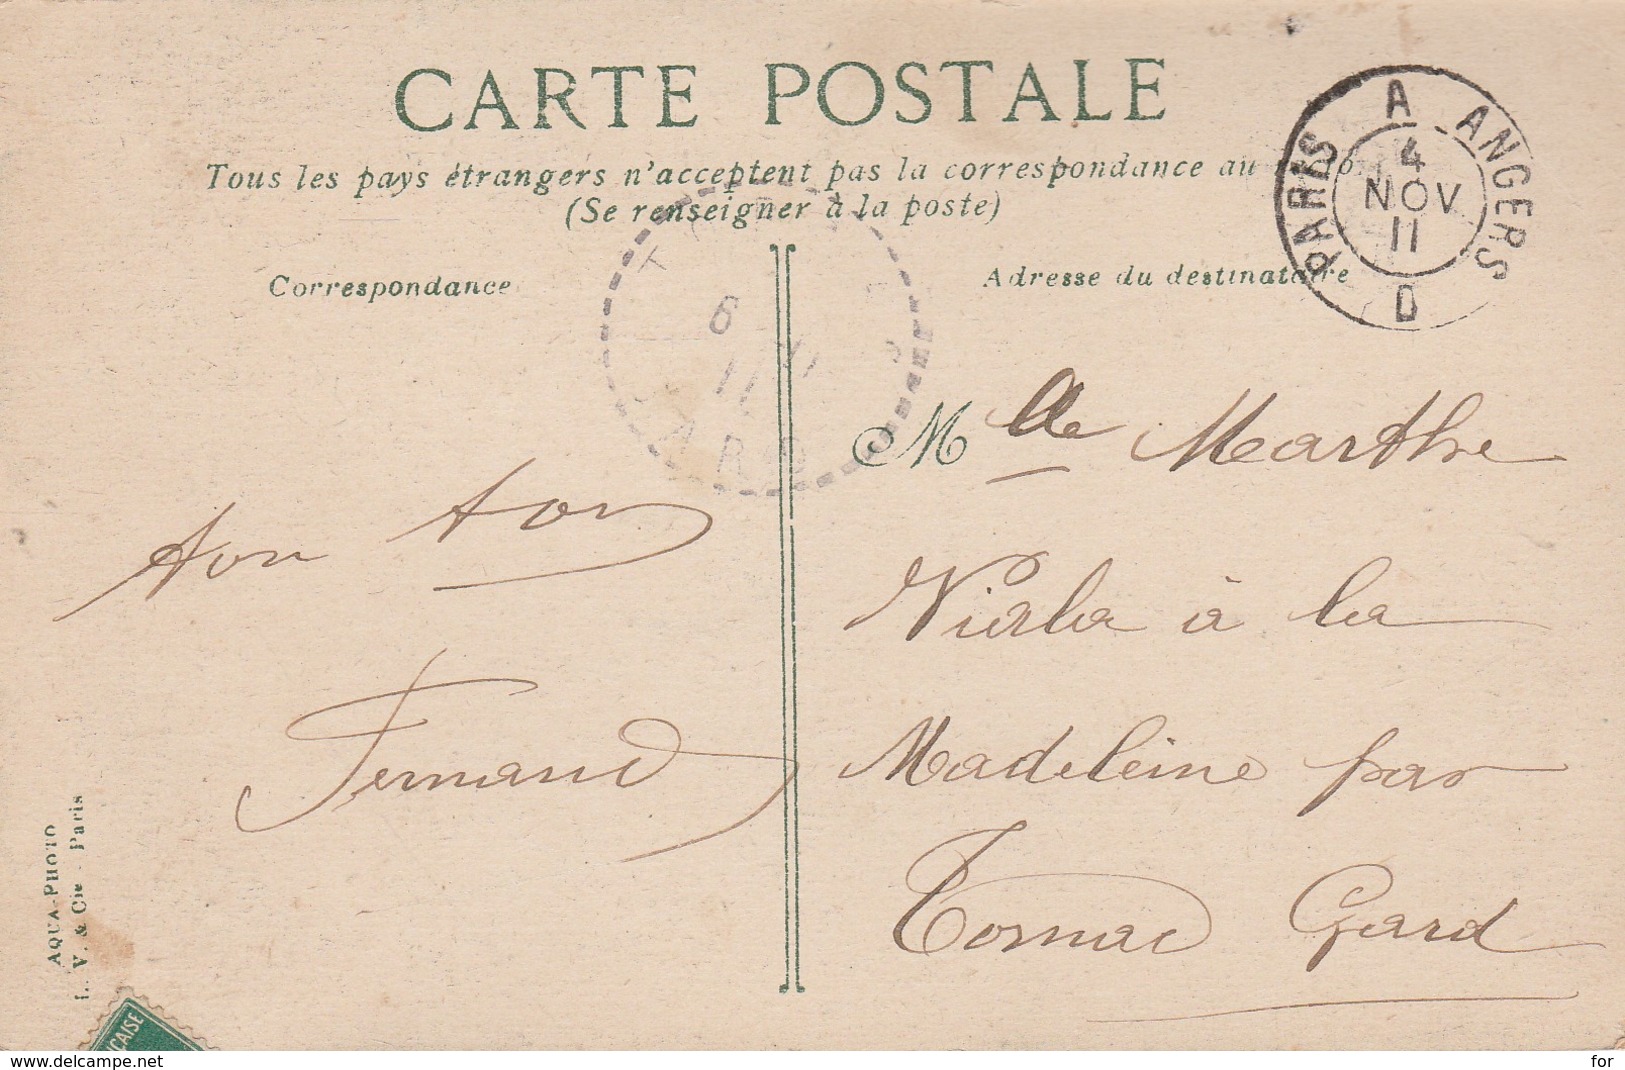 CARTE POSTALE
Tous les pays étrangers n'acceptent pas la correspondance au recto.
(Se renseigner à la poste)
Correspondance
Adresse du destinataire
PARIS A ANGERS
4
NOV
11
D
6 11
11
GARD
Mlle Marthe
Viala à la
Madeleine par
Tornac Gard
Fernand
AQUA-PHOTO
L. V. & Cie - Paris
ÇAISE
www.delcampe.net
for